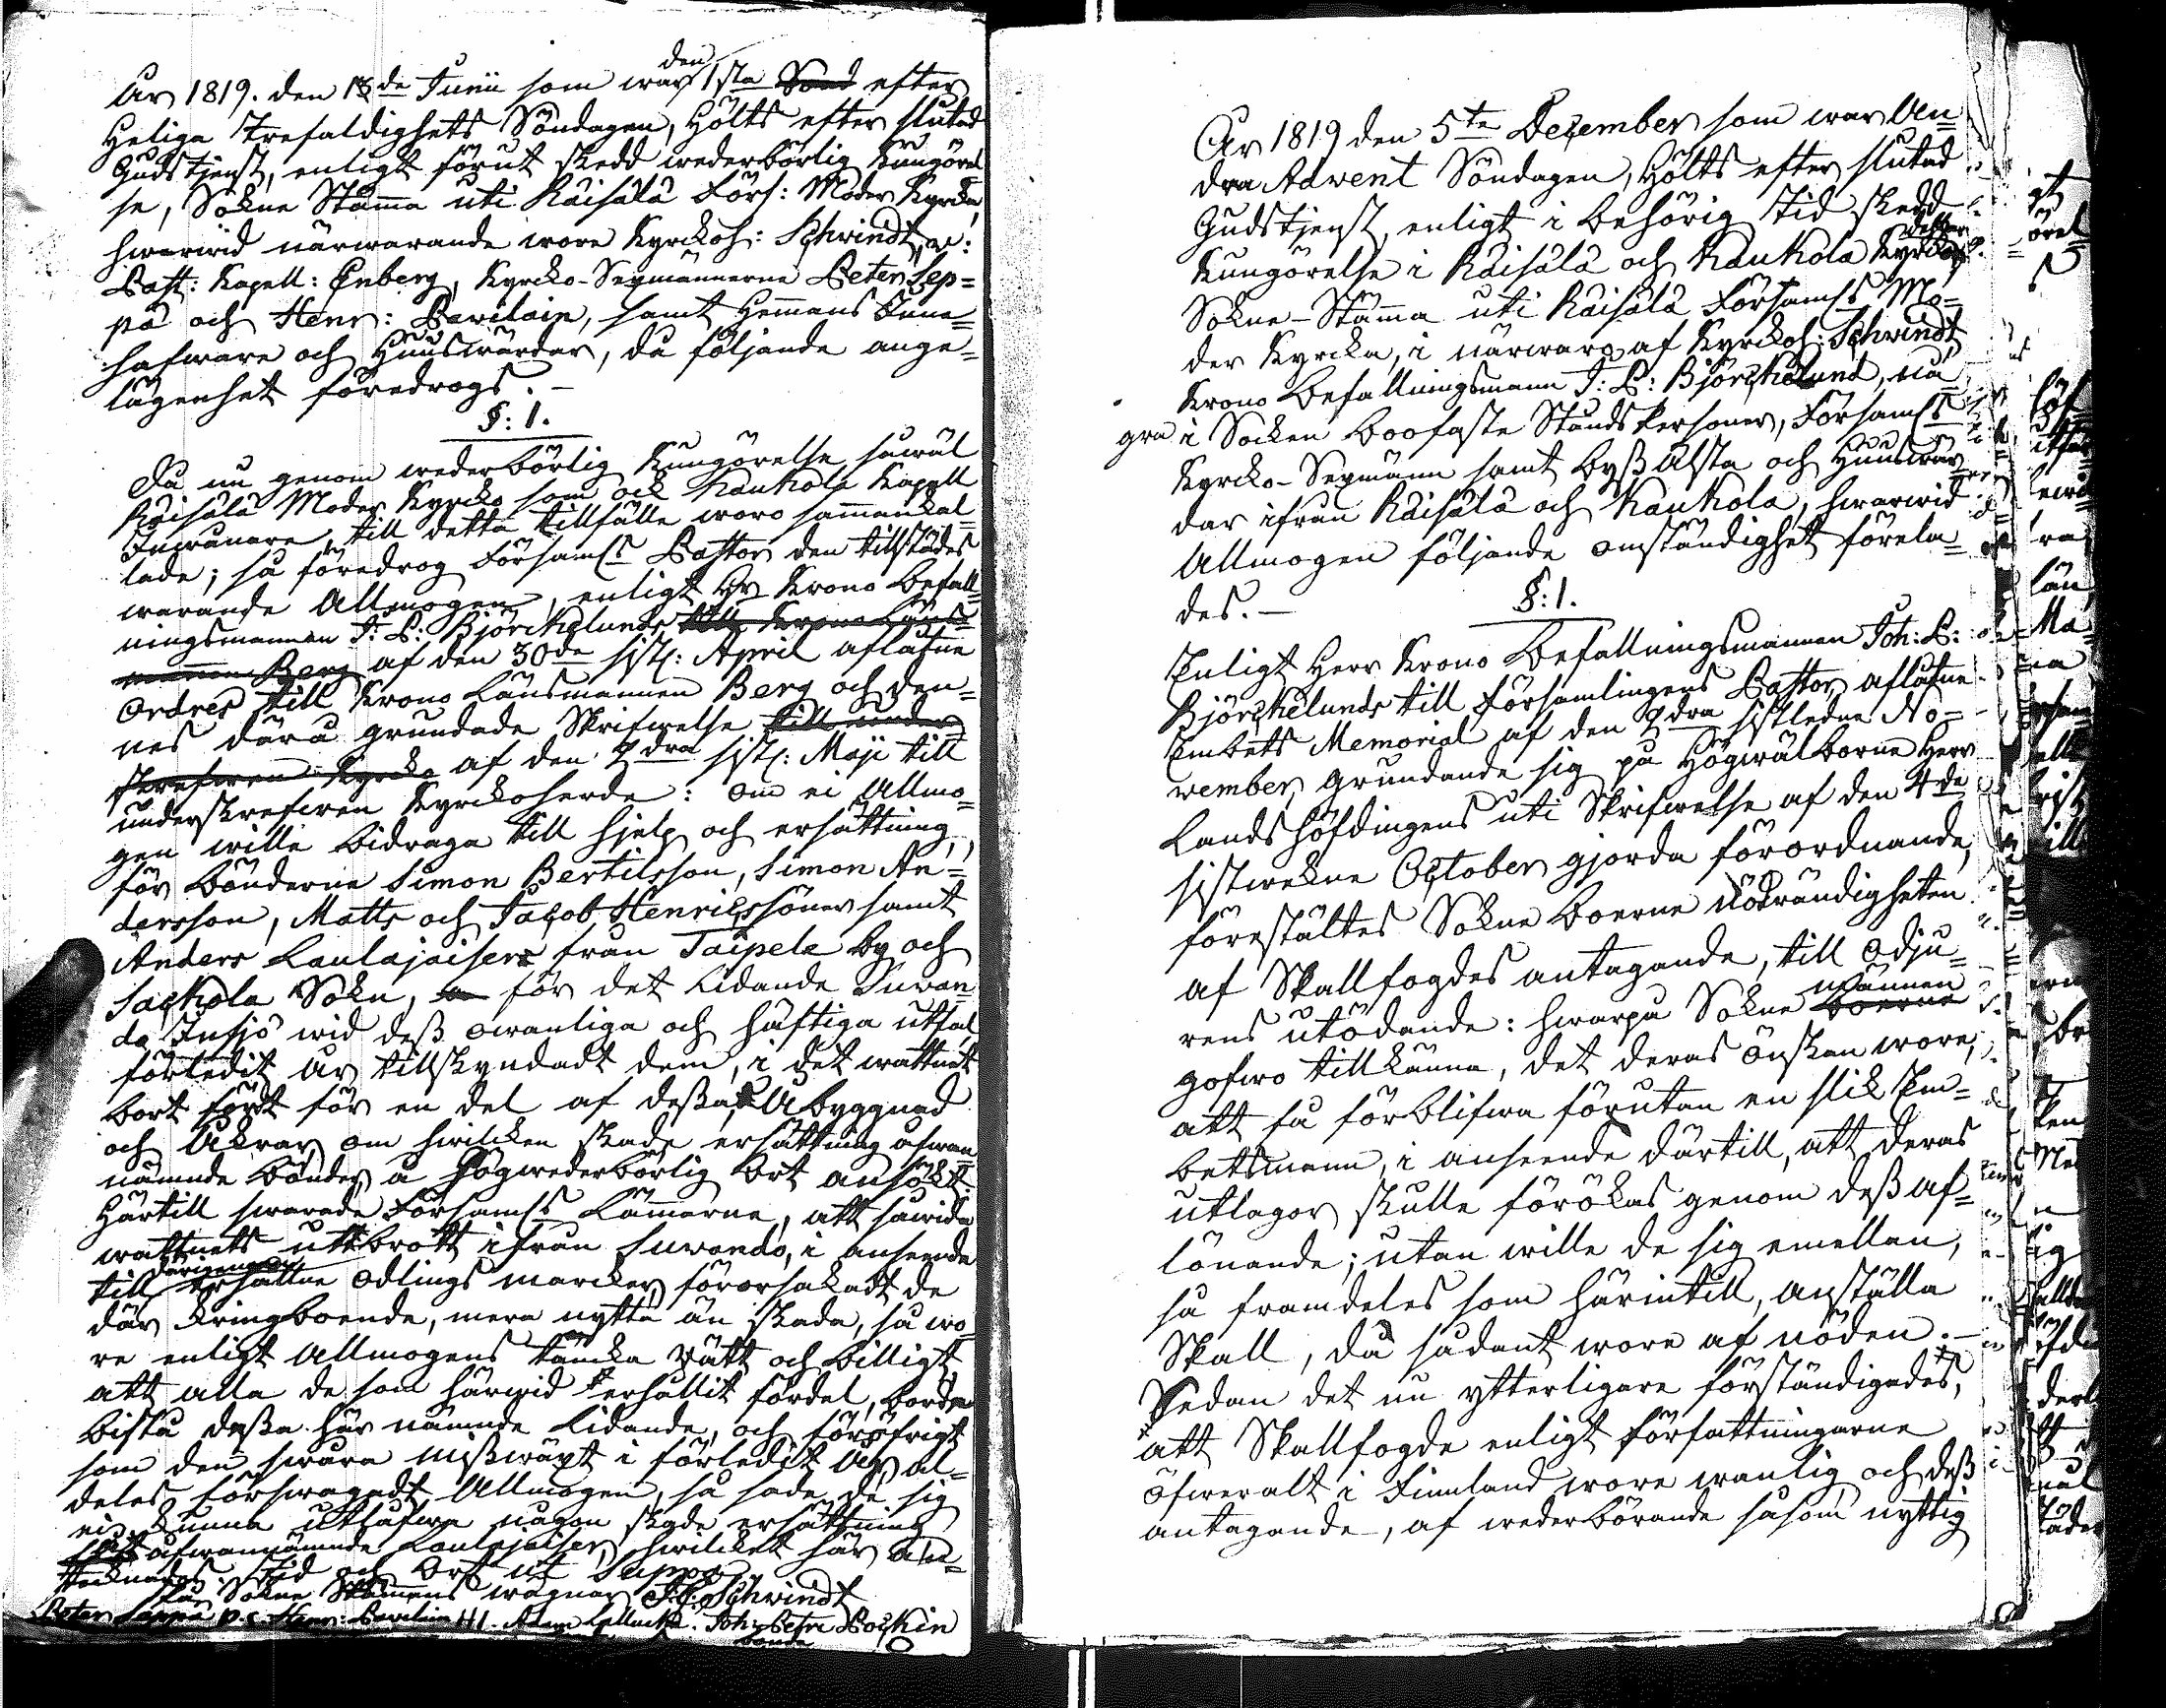 År 1819. den 13de Junii som war den 1sta Sönd efter
Heliga Trefaldighets Söndagen, hölts efter slutad
Gudstjenst, enligt förut skedd wederbörlig kungörel
se, Sokne Stämma uti Räisälä Förs: Moder Kyrcka,
hwarwid närwarande wore Kyrckoh: Schwindt, v:
Past: Kapell: Enberg, Kyrcko-Sexmännerne Peter Sep=
pä och Henr: Pawilain, samt Hemmans Inne=
hafware och Huuswärdar, då följande ange=
lägenhet föredrogs. –
§: 1.
Då nu genom wederbörlig kungörelse såwäl
Räisälä Moder Kyrcko som ock Kaukola Kapell
Inwånare, till detta tillfälle woro sammankal=
lade; så föredrog Församls Pastor den tillstädes
warande Allmogen, enligt Hr Krono Befall=
ningsmannen J: P: Björckelunds till Krono Läns=
mannen Berg af den 30de sistl: April aflåtne
Ordres till Krono Länsmannen Berg och den=
nes därå grundade Skrifwelse till under
skrefwen Kyrcko af den 2dra sistl: Maji till
underskrefwen Kyrckoherde: om ei Allmo=
gen wille bidraga till hjelp och ersättning,
för bönderne Simon Bertilsson, Simon An=
dersson, Matts och Jacob Henricssöner samt
Anders Laulajaisen från Taipele by och
Sackola Sokn, för det lidande Suwan
do Insjö wid dess owanliga och häftiga utfal
förledit år tillskyndadt dem, i det wattnet
bort fördt för en del af dessa Åbyggnad
och Åkrar, om hwilcken skade ersättning ofwan
nämnde bönder å högwederbörlig Ort ansökt.
Härtill swarade Församls Lämmarne, att såwida
wattnets uttbrott ifrån Suwando, i anseende
till därigenom erhållne odlings marcker, förorsakadt de
där kringboende, mera nytta än skada, så wo
re enligt Allmogens tancka rätt och billigt
att alla de som härwid erhållit fördel, borde
bistå dessa här nämnde lidande, och för öfrigt
som den swåra misswäxt i förledit år al=
deles förswagadt Allmogen, så sade de sig
ei kunna utlåfwa någon skade ersättning
åt ofwannämnde Laulajaisen, hwilcket här an=
tecknades. Tid och Ort ut Supra
På Sokne Stämmans wägnar J. F. Schwindt
Peter Seppä P.S. Henr: Pawilain HI. Adam Joh: Petr Poickin
bonde
År 1819 den 5te December som war An
dra Advent Söndagen, hölts efter slutad
Gudstjenst, enligt i behörig tid skedd
kungörelse i Räisälä och Kaukola Kyrckor
Sokne-Stämma uti Räisälä Församls Mo=
der Kyrcka, i närwaro af Kyrckoh: Schwindt
Krono Befallningsmann J: P: Björckelund, nå
gra i Socken boofaste Ståndspersoner, Församls
Kyrcko-Sexmänn samt byss Älsta och Huuswär
dar ifrån Räisälä och Kaukola, hwarwid
Allmogen följande omständighet förela=
des. –
§: 1.
Enligt Herr Krono Befallningsmannen Joh: P:
Björckelunds till Församlingens Pastor aflåtne
Embets Memorial af den 2dra sistledne No=
vember, grundande sig på Högwälborne Herr
Landshöfdingens uti Skrifwelse af den 4de
sistwekne October gjorda förordnande,
föreställtes Sokne boerne nödwändigheten
af Skallfogdes antagande, till odju=
rens utödande: hwarpå Sokne boerne männen
gofwo tillkänna, det deras önskan wore,
att få förblifwa förutan en slik Em=
betsmann, i anseende därtill, att deras
utlagor skulle förökas genom dess af=
lönande; utan wille de sig emellan,
så framdeles som härintill, anställa
Skall, då sådant wore af nöden. –
Sedan det nu ytterligare förständigades,
att Skallfogde enligt författningarne
öfweralt i Finnland wore wanlig och dess
antagande, af wederbörande såsom nyttig